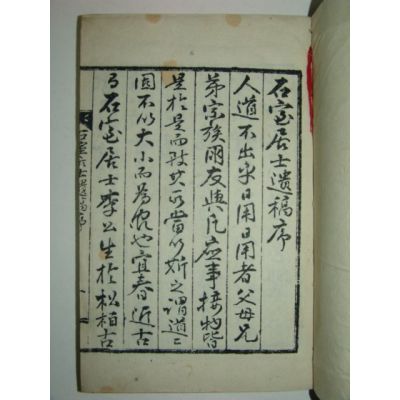 石室居士遺稿序
人道不出乎日用日用者父母兄
弟宗族朋友與凡應事接物皆
是於是而致其所當以斯之謂道二
固不以大小而為也宜春近古
有石室居士李公生於松柏古
石室居士遺稿序